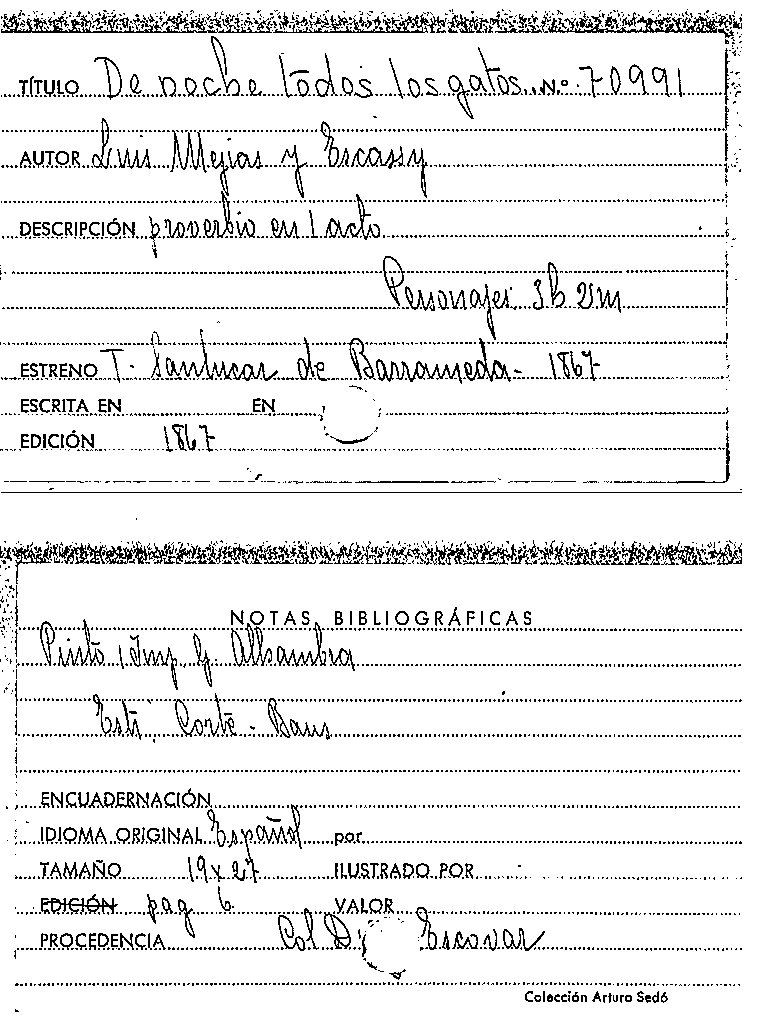 TÍTULO De noche todos los gatos.. Nº 70991
AUTOR Luis Mejias y Escassy
DESCRIPCIÓN proverbio en 1 acto
Personajes 3h 2m
ESTRENO T. Sanlucar de Barrameda - 1867
ESCRITA EN EN
EDICIÓN 1867
NOTAS BIBLIOGRÁFICAS
Pinto, Imp. G. Alhambra
Est. Corte - Baus
ENCUADERNACIÓN
IDIOMA ORIGINAL Español por
TAMAÑO 19 x 27 ILUSTRADO POR
EDICIÓN pag 6 VALOR
PROCEDENCIA Col Escovar
Colección Arturo Sedó